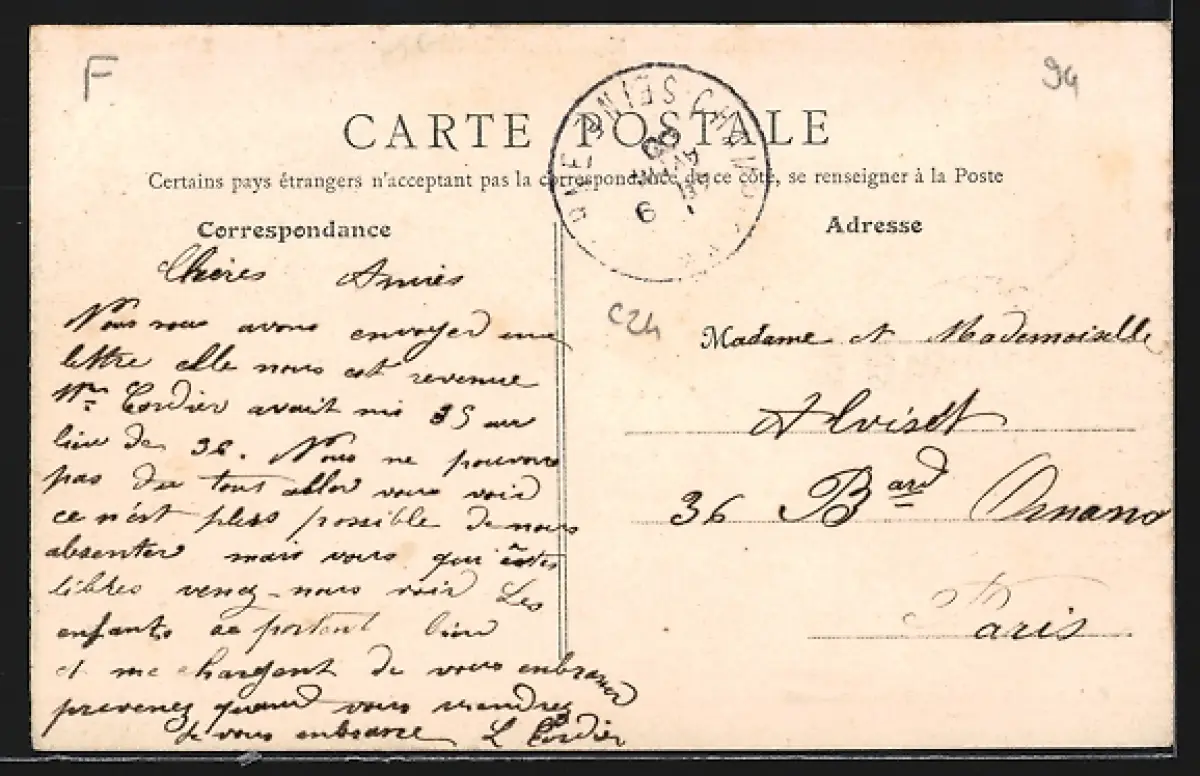 F
94
CARTE POSTALE
Certains pays étrangers n'acceptant pas la correspondance de ce côté, se renseigner à la Poste
Correspondance
Adresse
Chères Amies
Nous vous avons envoyer une
lettre elle nous est revenue
Mr Cordier avait mis 35 au
lieu de 36. Nous ne pouvons
pas du tout aller vous voir
ce n'est plus possible de nous
absenter mais vous qui êtes
libres venez-nous voir Les
enfants se portent bien
et me chargent de vous embrasser
prevenez quand vous viendrez
Je vous embrasse L Cordier
C24
Madame et Mademoiselle
Alviset
36 Bard Ornano
Paris
SEINE
9
AVRIL